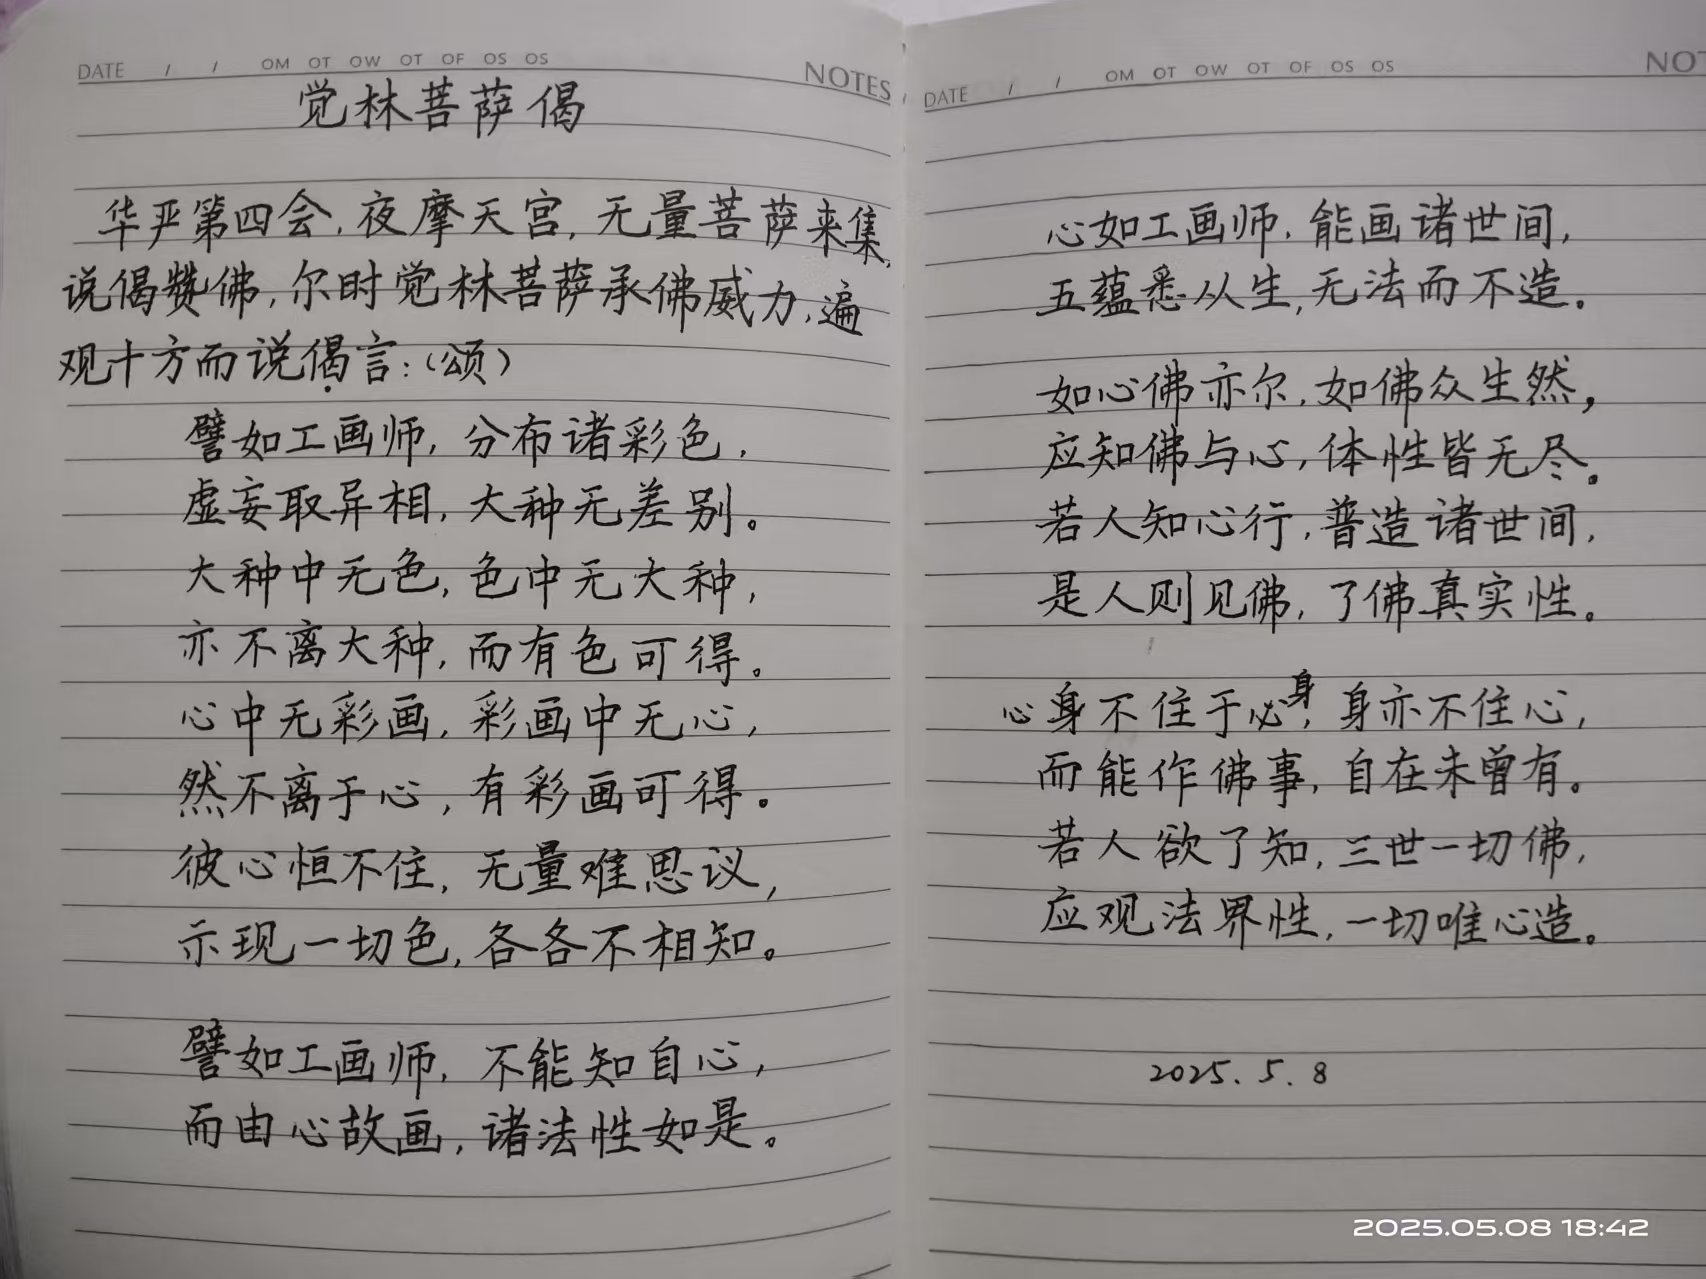 DATE / / OM OT OW OT OF OS OS
NOTES
觉林菩萨偈
华严第四会,夜摩天宫,无量菩萨来集,
说偈赞佛,尔时觉林菩萨承佛威力,遍
观十方而说偈言:(颂)
譬如工画师,分布诸彩色,
虚妄取异相,大种无差别。
大种中无色,色中无大种,
亦不离大种,而有色可得。
心中无彩画,彩画中无心,
然不离于心,有彩画可得。
彼心恒不住,无量难思议,
示现一切色,各各不相知。
譬如工画师,不能知自心,
而由心故画,诸法性如是。
DATE / / OM OT OW OT OF OS OS
NOT
心如工画师,能画诸世间,
五蕴悉从生,无法而不造。
如心佛亦尔,如佛众生然,
应知佛与心,体性皆无尽。
若人知心行,普造诸世间,
是人则见佛,了佛真实性。
心身不住于身,身亦不住心,
而能作佛事,自在未曾有。
若人欲了知,三世一切佛,
应观法界性,一切唯心造。
2025.5.8
2025.05.08 18:42